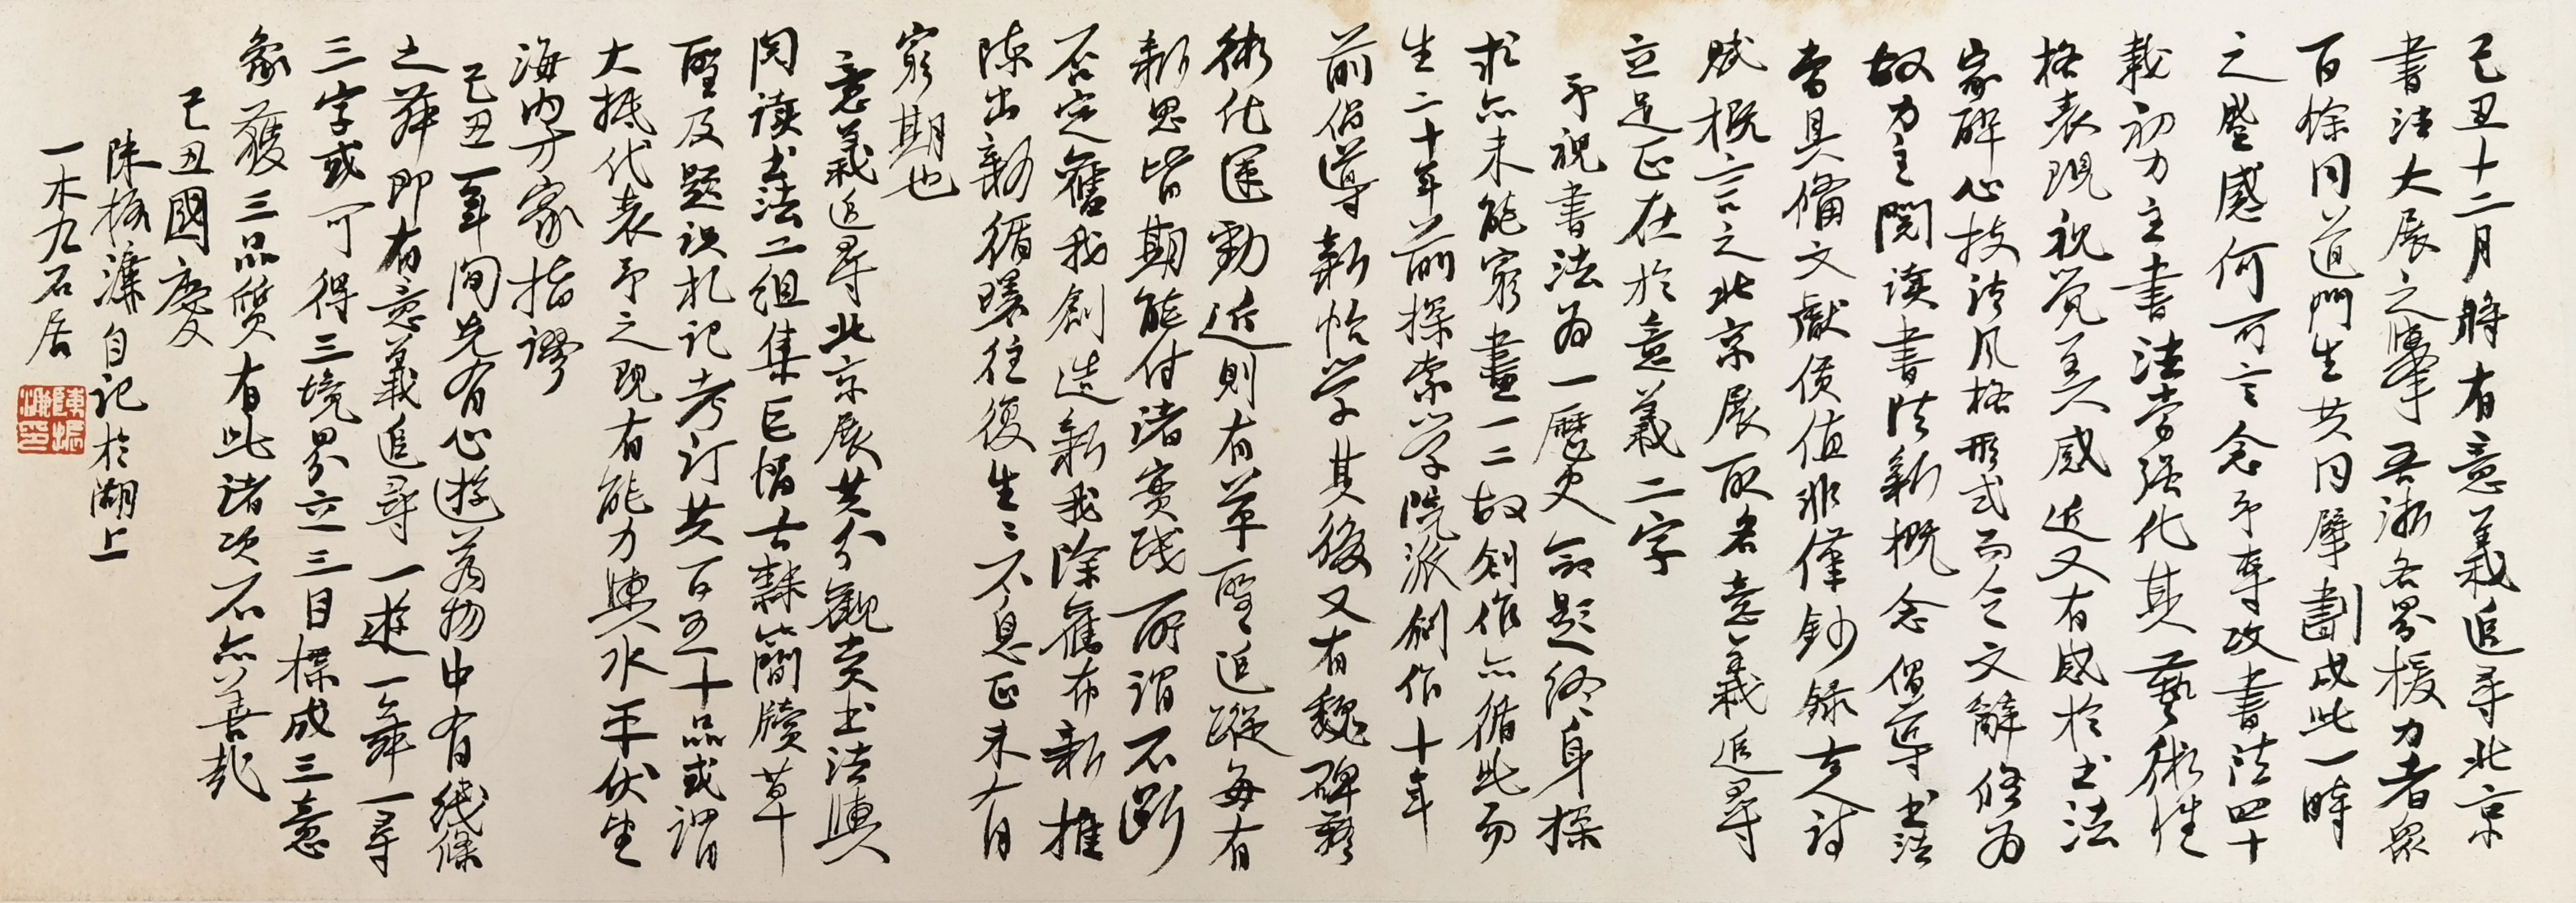 己丑十二月將有意義追尋北京
書法大展之舉吾浙各界援力者眾
百餘同道門生共同擘劃成此一時
之盛感何可言念予專攻書法四十
載初力主書法當強化其藝術性
格表现視覺美感近又有感於书法
家醉心技法风格形式而令文辭多为
故力主閱读書法新概念倡導书法
當具備文獻價值非僅鈔錄古人诗
賦概言之北京展取名意義追尋
立足正在於意義二字
予視書法為一歷史命題终身探
求亦未能窮盡一二故创作亦循此而
生二十年前探索学院派創作十年
前倡導新帖学其後又有魏碑藝
術化運動近則有草聖追蹤每有
新思皆期能付诸實践所謂不斷
否定舊我創造新我除舊布新推
陈出新循環往復生生不息正未有
窮期也
意義追尋北京展共分觀賞书法與
閱读书法二組集巨幅古隸簡牘草
聖及題識札記考訂共百五十品或謂
大抵代表予之现有能力與水平伏望
海内方家指謬
己丑一年间先有心遊萬物中有线條
之舞即有意義追尋一遊一舞一尋
三字或可得三境界立三目標成三意
象獲三品質有此诸项不亦善哉
己丑國慶
陳振濂自记於湖上
一木九石居
陳振濂印